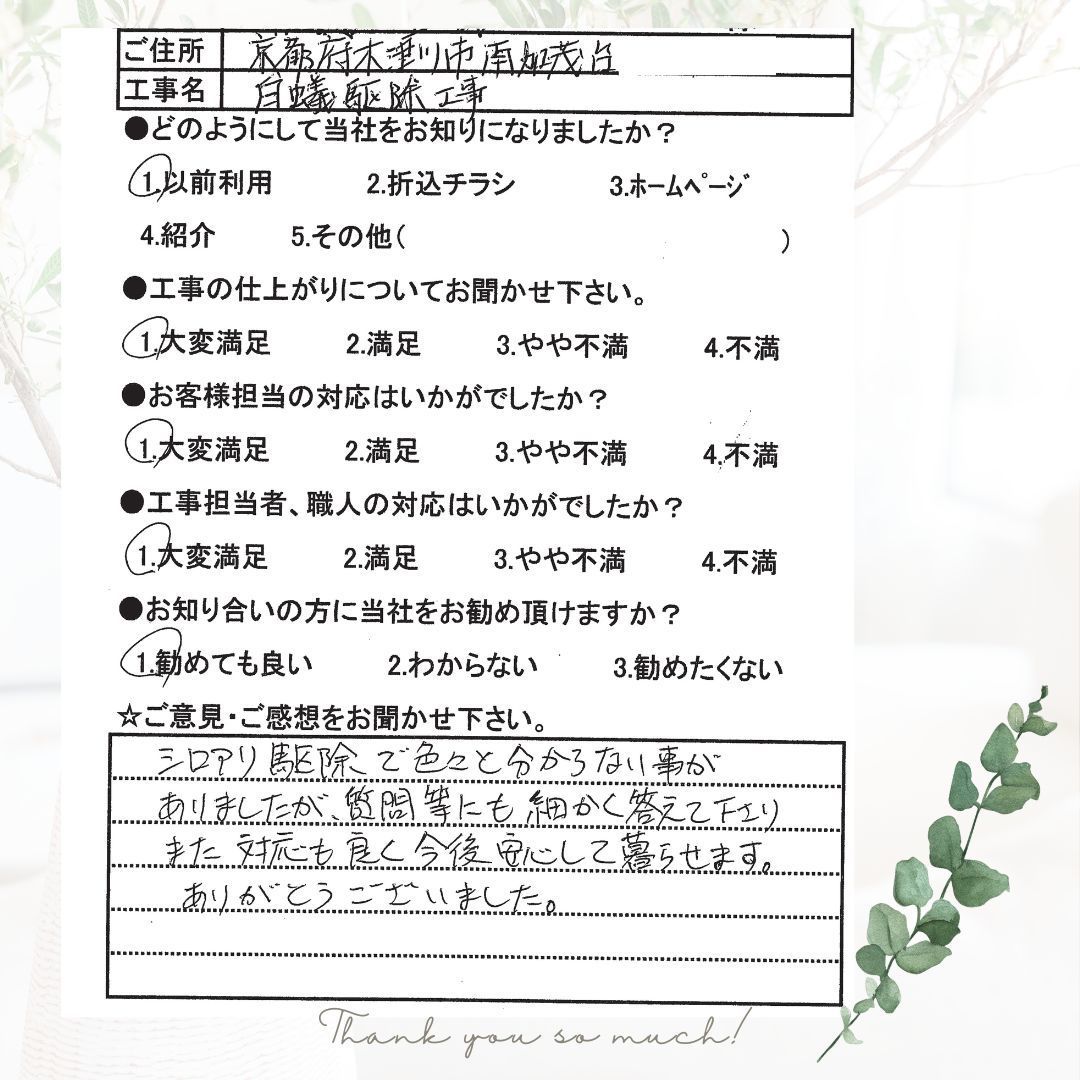 ご住所 京都府木津川市南加茂台
工事名 白蟻駆除工事
●どのようにして当社をお知りになりましたか？
1.以前利用 2.折込チラシ 3.ホームページ
4.紹介 5.その他( )
●工事の仕上がりについてお聞かせ下さい。
1.大変満足 2.満足 3.やや不満 4.不満
●お客様担当の対応はいかがでしたか？
1.大変満足 2.満足 3.やや不満 4.不満
●工事担当者、職人の対応はいかがでしたか？
1.大変満足 2.満足 3.やや不満 4.不満
●お知り合いの方に当社をお勧め頂けますか？
1.勧めても良い 2.わからない 3.勧めたくない
☆ご意見・ご感想をお聞かせ下さい。
シロアリ駆除で色々と分からない事が
ありましたが、質問等にも細かく答えて下さり
また対応も良く今後安心して暮らせます。
ありがとうございました。
Thank you so much!